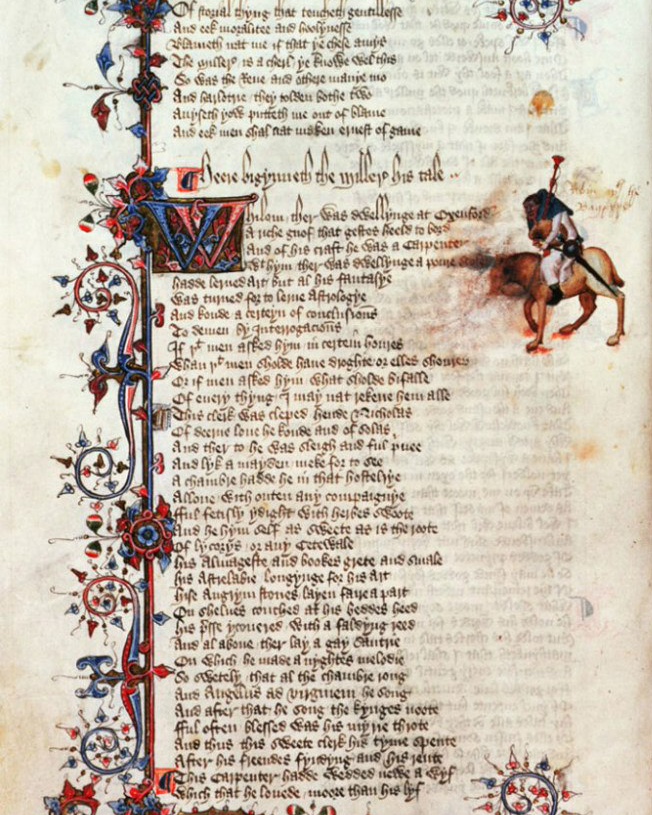 Of storial thyng that toucheth gentillesse
And eek moralitee and hoolynesse
Blameth nat me if that ye chese amys
The Millere is a cherl ye knowe wel this
So was the Reue and othere manye mo
And harlotrie they tolden bothe two
Auyseth yow putteth me out of blame
And eek men shal nat maken ernest of game
Heere bigynneth the Millere his tale
Whilom ther was dwellynge at Oxenford
A riche gnof that gestes heeld to bord
And of his craft he was a Carpenter
With hym ther was dwellynge a poure
hadde lerned art but al his fantasye
Was turned for to lerne Astrologye
And koude a certeyn of conclusions
To demen by Interrogacions
If þt men asked hym in certein houres
Whan þt men sholde haue droghte or elles shoures
Or if men asked hym what sholde bifalle
Of euery thyng I may nat rekene hem alle
This clerk was cleped hende Nicholas
Of deerne loue he koude and of solas
And ther to he was sleigh and ful priuee
And lyk a mayden meke for to see
A chambre hadde he in that hostelrye
Allone with outen any compaignye
fful fetisly ydight with herbes swoote
And he hym self as sweete as is the roote
Of lycorys or any Cetewale
his Almageste and bookes grete and smale
his Astrelabie longynge for his art
hise Augrym stones layen faire a part
On shelues couched at his beddes heed
his presse ycouered with a faldyng reed
And al aboue ther lay a gay Sautrie
On which he made a nyghtes melodie
So swetely that al the chambre rong
And Angelus ad virginem he song
And after that he song the kynges noote
fful often blessed was his myrie throte
And thus this sweete clerk his tyme spente
After his freendes fyndyng and his rente
This Carpenter hadde wedded newe a wyf
Which that he louede moore than his lyf